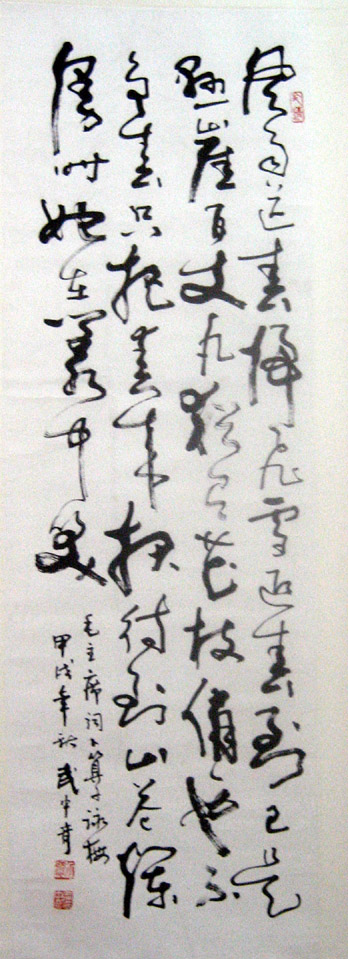 風雨送春歸飛雪迎春到已是
懸崖百丈冰猶有花枝俏也不
争春只把春来報待到山花爛
漫时她在叢中笑
毛主席詞卜算子詠梅
甲戌年秋武中奇